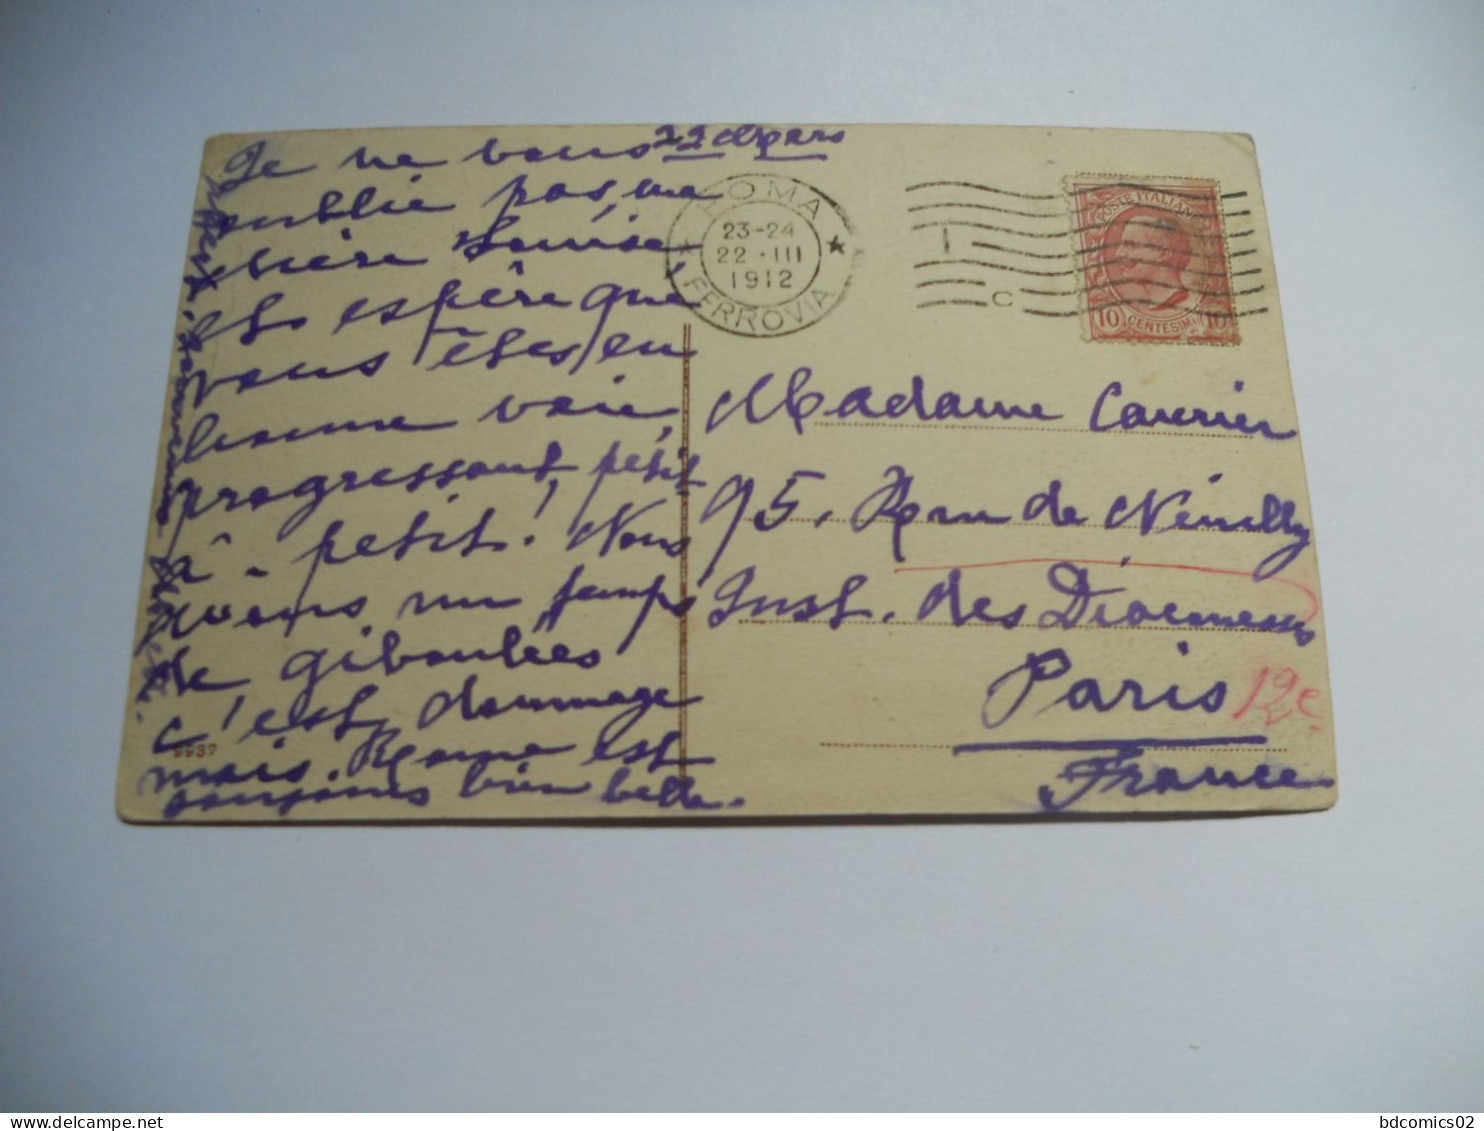 22 Mars
Je ne vous
oublie pas, ma
chère Louise
et espère que
vous êtes en
bonne voie,
progressant petit
à petit! Nous
avons un temps
de giboulées
c'est dommage
mais Rome est
toujours bien belle.
9937
ROMA
23-24
22·III
1912
FERROVIA
1
C
POSTE ITALIANE
10 CENTESIMI 10
Madame Courrier
95, Rue de Neuilly
Inst. des Diaconesses
Paris 12e
France
bdcomics02